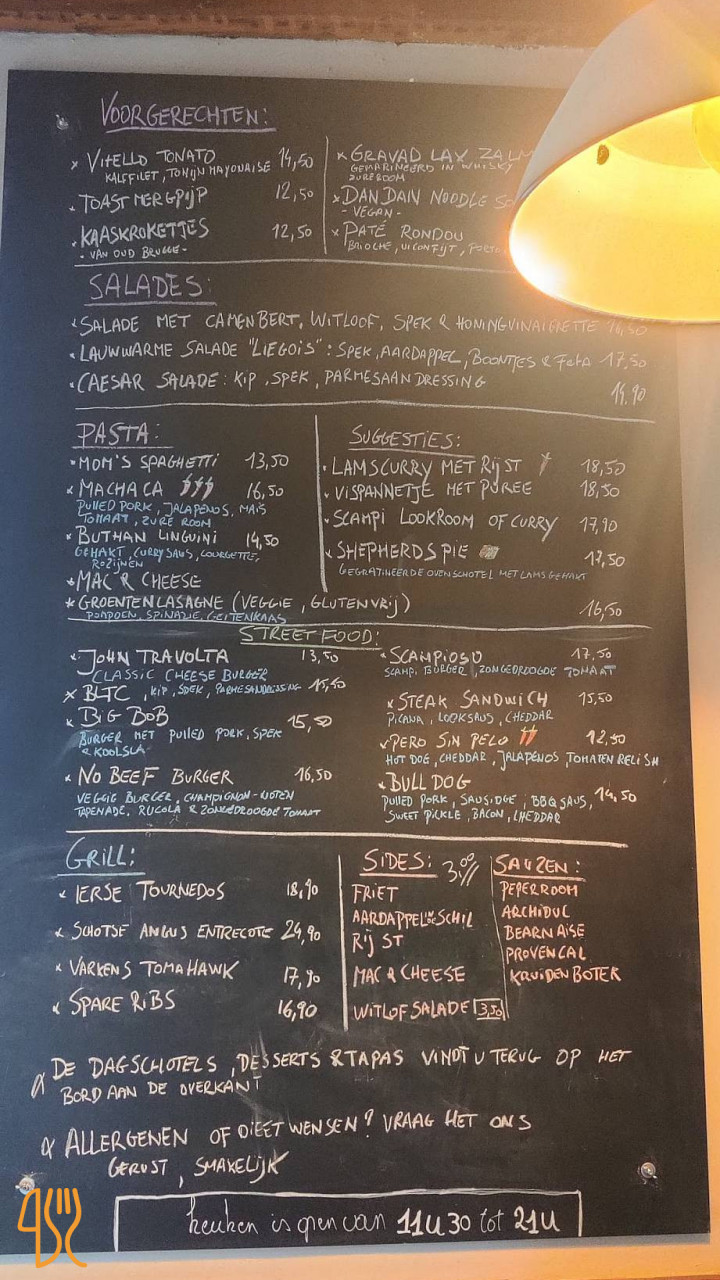 VOORGERECHTEN:
x VITELLO TONATO 14,50
KALFFILET, TONIJN MAYONAISE
TOAST MERGPIJP 12,50
KAASKROKETJES 12,50
- VAN OUD BRUGGE -
x GRAVAD LAX ZALM
GEMARINEERD IN WHISKY
ZUREROOM
x DAN DAN NOODLE
- VEGAN -
x PATÉ RONDOU
BRIOCHE, UICONFIJT,
SALADES:
SALADE MET CAMENBERT, WITLOOF, SPEK & HONINGVINAIGRETTE 16,50
LAUWWARME SALADE "LIEGOIS": SPEK, AARDAPPEL, BOONTJES & FETA 17,50
CAESAR SALADE: KIP, SPEK, PARMESAANDRESSING 14,90
PASTA:
MOM'S SPAGHETTI 13,50
MACHACA 16,50
PULLED PORK, JALAPENOS, MAIS
TOMAAT, ZURE ROOM
BUTHAN LINGUINI 14,50
GEHAKT, CURRYSAUS, COURGETTE,
ROZIJNEN
MAC & CHEESE
x GROENTENLASAGNE (VEGGIE, GLUTENVRIJ) 16,50
POMPOEN, SPINAZIE, GEITENKAAS
SUGGESTIES:
LAMSCURRY MET RIJST 18,50
VISPANNETJE MET PUREE 18,50
SCAMPI LOOKROOM OF CURRY 17,90
SHEPHERDS PIE 17,50
GEGRATINEERDE OVENSCHOTEL MET LAMSGEHAKT
STREETFOOD:
JOHN TRAVOLTA 13,50
CLASSIC CHEESE BURGER
x BLTC, KIP, SPEK, PARMESANDRESSING 15,50
x BIG BOB 15,50
BURGER MET PULLED PORK, SPEK
& KOOLSLA
NO BEEF BURGER 16,50
VEGGIE BURGER, CHAMPIGNON-NOTEN
TAPENADE, RUCOLA & ZONGEDROOGDE TOMAAT
SCAMPIOSO 17,50
SCAMPI BURGER, ZONGEDROOGDE TOMAAT
x STEAK SANDWICH 15,50
PICANA, LOOKSAUS, CHEDDAR
PERO SIN PELO 12,50
HOT DOG, CHEDDAR, JALAPENOS, TOMATEN RELISH
BULLDOG 14,50
PULLED PORK, SAUSIDGE, BBQ SAUS,
SWEET PICKLE, BACON, CHEDDAR
GRILL:
IERSE TOURNEDOS 18,90
SCHOTSE ANGUS ENTRECOTE 24,90
x VARKENS TOMAHAWK 17,90
SPARE RIBS 16,90
SIDES: 3,00
FRIET
AARDAPPEL IN DE SCHIL
RIJST
MAC & CHEESE
WITLOFSALADE 3,50
SAUZEN:
PEPERROOM
ARCHIDUC
BEARNAISE
PROVENCAL
KRUIDENBOTER
DE DAGSCHOTELS, DESSERTS & TAPAS VINDT U TERUG OP HET
BORD AAN DE OVERKANT
ALLERGENEN OF DIEET WENSEN? VRAAG HET ONS
GERUST, SMAKELIJK
keuken is open van 11U30 tot 21U